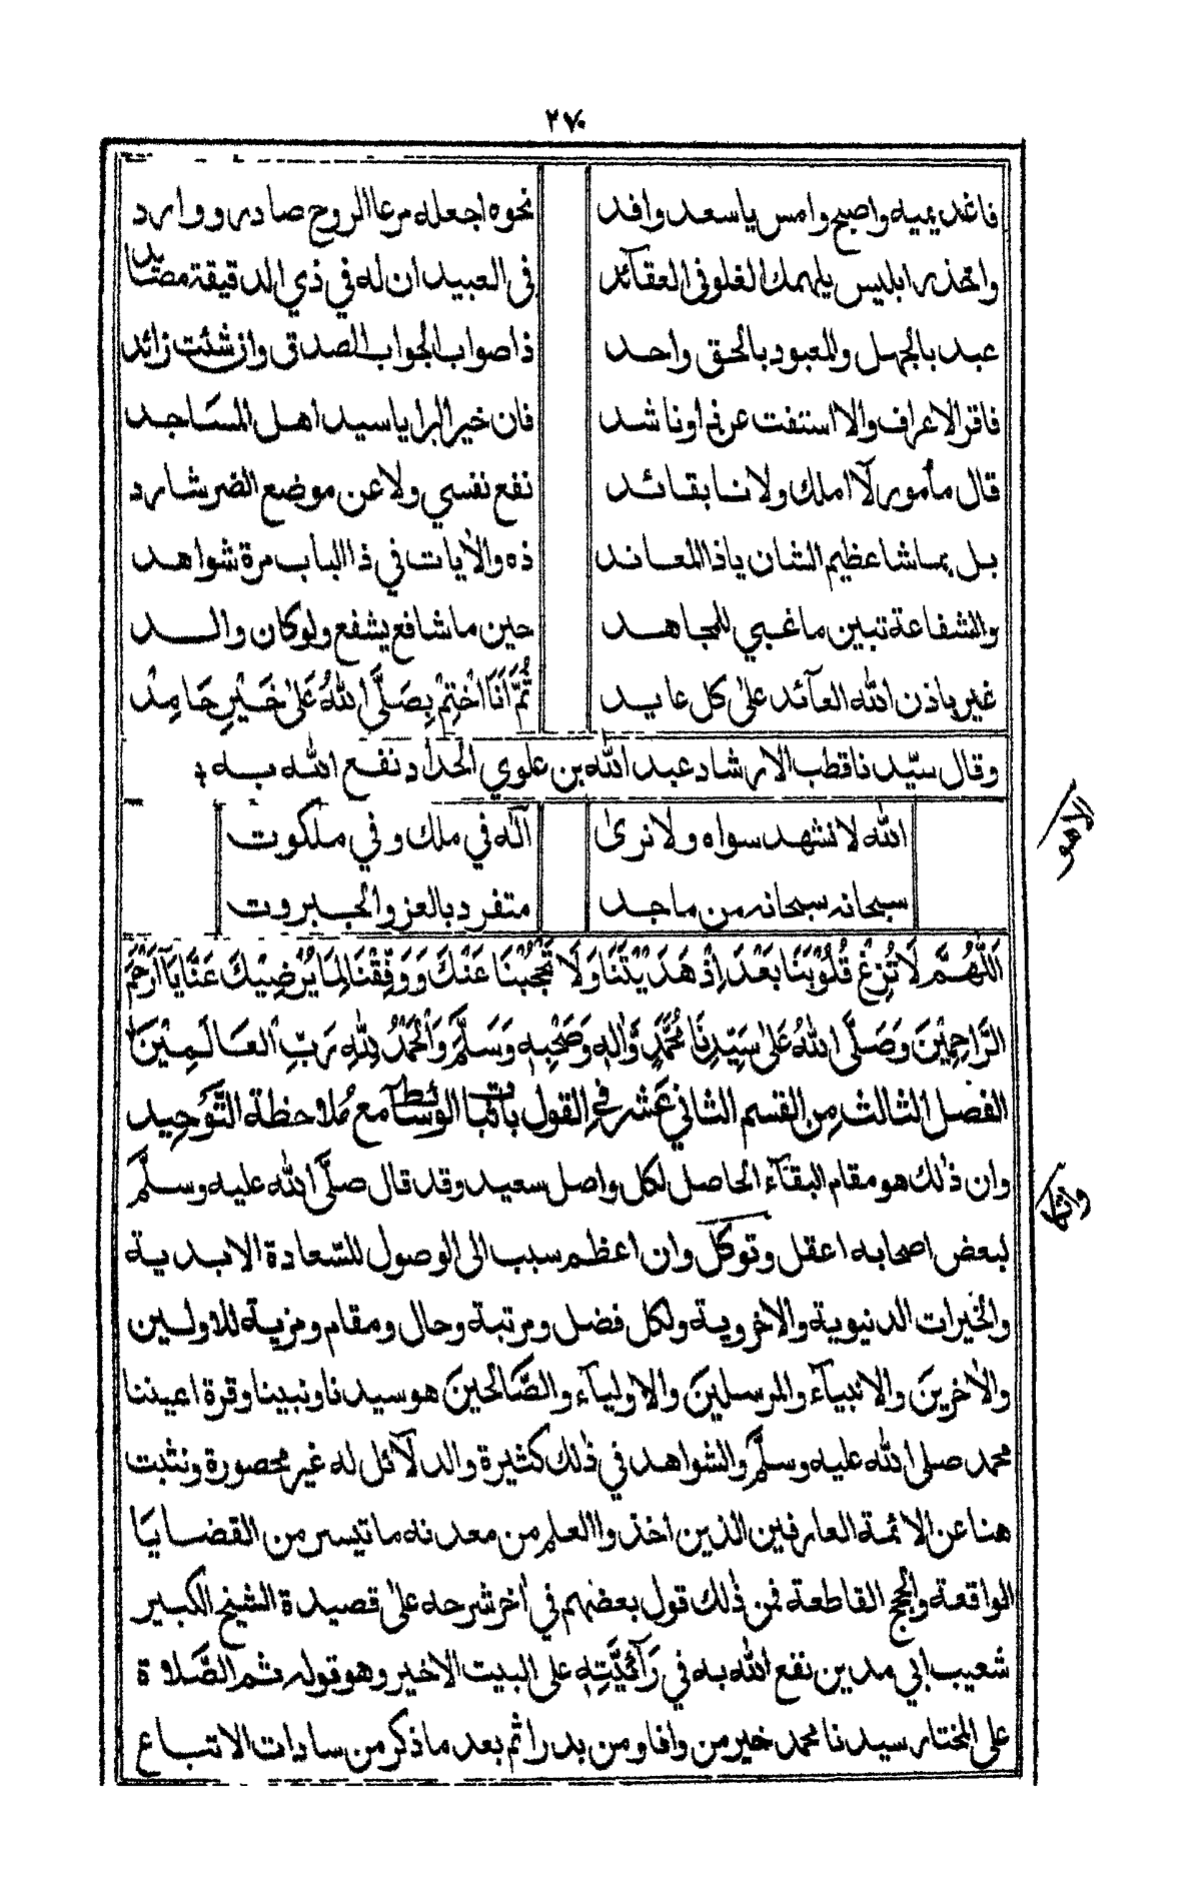 ٢٧٠
فاغد يميه واصبح وامس يا سعد وافد نحوه اجعله مرعا الروح صادر ووارد
واتحذر ابليس يلهمك الغلو فى العقآئد فى العبيد ان له في ذي الدقيقة مصايد
عبد بالجهل والمعبود بالحق واحد ذا صواب الجواب الصدق وان شئت زائد
فاقر الاعراف والا استفت عرني اوناشد فان خير البرايا سيد اهل المساجد
قال مأمور لآ املك ولا نا بقائد نفع نفسي ولا عن موضع الضر شارد
بل بما شا عظيم الشان ياذا المعاند ذه والأيات في ذا الباب مرة شواهد
والشفاعة تبين ما غبي للمجاهد حين ما شافع يشفع ولو كان والد
غير باذن الله العآئد على كل عايد ثُمَّ أَنَا اخْتِمْ بِصَلَّى اللهُ عَلَى خَيْرِ حَامِدْ
وقال سيّدنا قطب الارشاد عبد الله بن علوي الحداد نفع الله به
الله لا نشهد سواه ولا نرى آله في ملك وفي ملكوت
سبحانه سبحانه من ماجد متفرد بالعز والجبروت
الاهو
اَللّٰهُمَّ لَا تُزِغْ قُلُوْبَنَا بَعْدَ اِذْ هَدَيْتَنَا وَلَا تَحْجُبْنَا عَنْكَ وَوَفِّقْنَا لِمَا يُرْضِيْكَ عَنَّا يَآ اَرْحَمَ
الرَّاحِمِيْنَ وَصَلَّى اللهُ عَلىٰ سَيِّدِنَا مُحَمَّدٍ وَّاٰلِهٖ وَصَحْبِهٖ وَسَلَّمَ وَالْحَمْدُ لِلّٰهِ رَبِّ الْعَالَمِيْنَ
الفصل الثالث مِن القسم الثاني عَشر في القول باثبات الوسآئط مع مُلاحظة التَّوْحِيد
وان ذلك هو مقام البقآء الحاصل لكل واصل سعيد وقد قال صلَّى الله عليه وسلَّم
لبعض اصحابه اعقل وتوكل وان اعظم سبب الى الوصول للسّعادة الابدية
والخيرات الدنيوية والاخروية ولكل فضل ومرتبة وحال ومقام ومزية للاولين
والأخرين والانبيآء والمرسلين والاوليآء والصَّالحين هو سيدنا ونبينا وقرة اعيننا
محمد صلى الله عليه وسلَّم والشواهد في ذلك كثيرة والدلآئل له غير محصورة ونثبت
هنا عن الائمة العارفين الذين اخذوا العلم من معدنه ما تيسر من القضايا
الواقعة والحجج القاطعة فمن ذلك قول بعضهم في أخر شرحه على قصيدة الشيخ الكبير
شعيب ابي مدين نفع الله به في رَآئيَّتِهٖ على البيت الاخير وهو قوله ثم الصَّلاة
على المختار سيدنا محمد خير من وافا ومن بدرا ثم بعد ما ذكر من سادات الاتباع